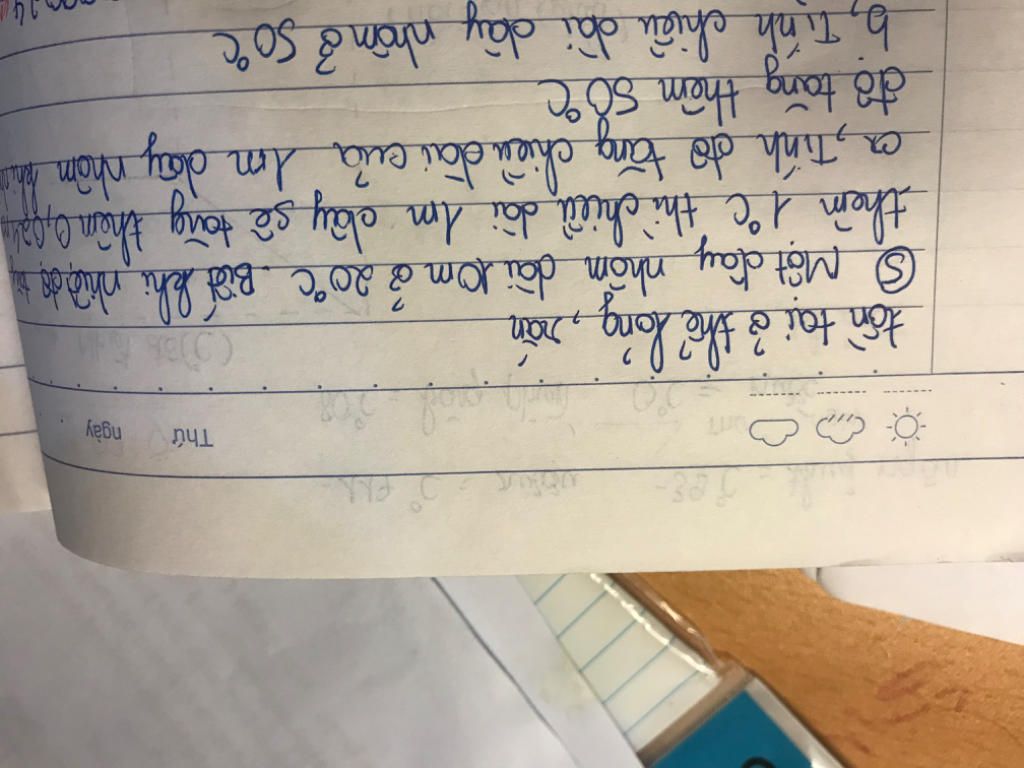 Thứ
ngày
tồn tại ở thể lỏng, rắn
⑤ Một dây nhôm dài 10m ở 20°C. Biết khi nhiệt độ
thêm 1°C thì chiều dài 1m dây sẽ tăng thêm
a, Tính độ tăng chiều dài của 1m dây nhôm khi
độ tăng thêm 50°C
b, Tính chiều dài dây nhôm ở 50°C